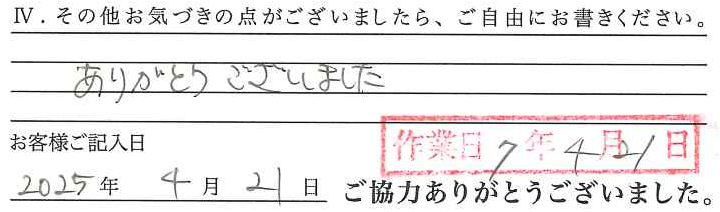 Ⅳ．その他お気づきの点がございましたら、ご自由にお書きください。
ありがとうございました
お客様ご記入日
作業日 7年4月21日
2025年 4月 21日
ご協力ありがとうございました。